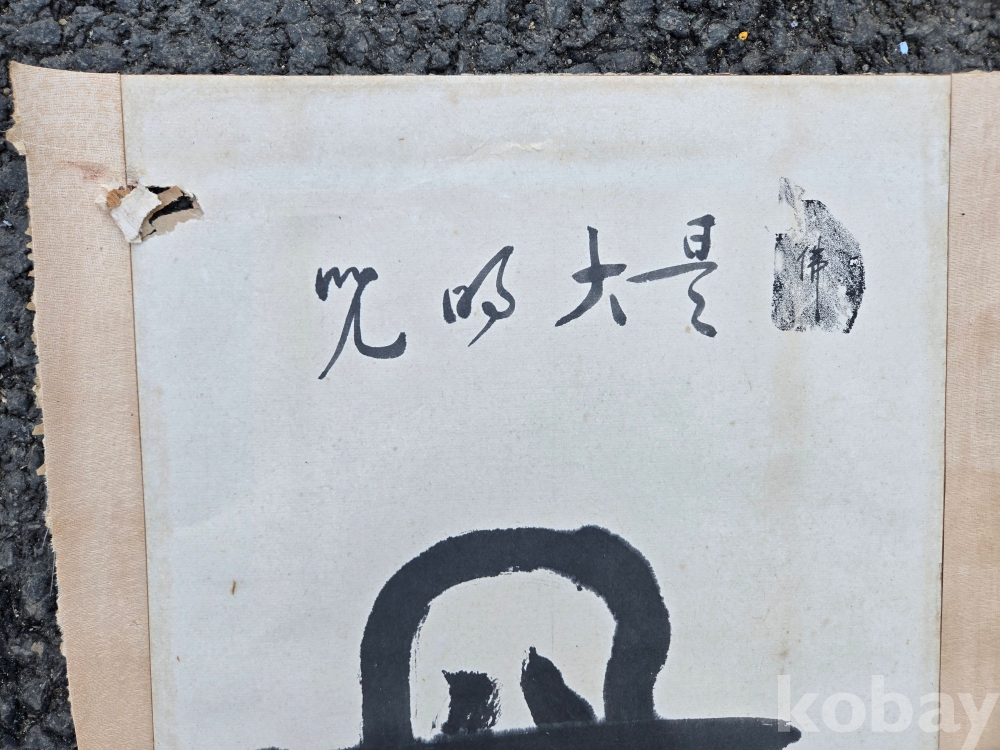 佛
是大明呪
kobay